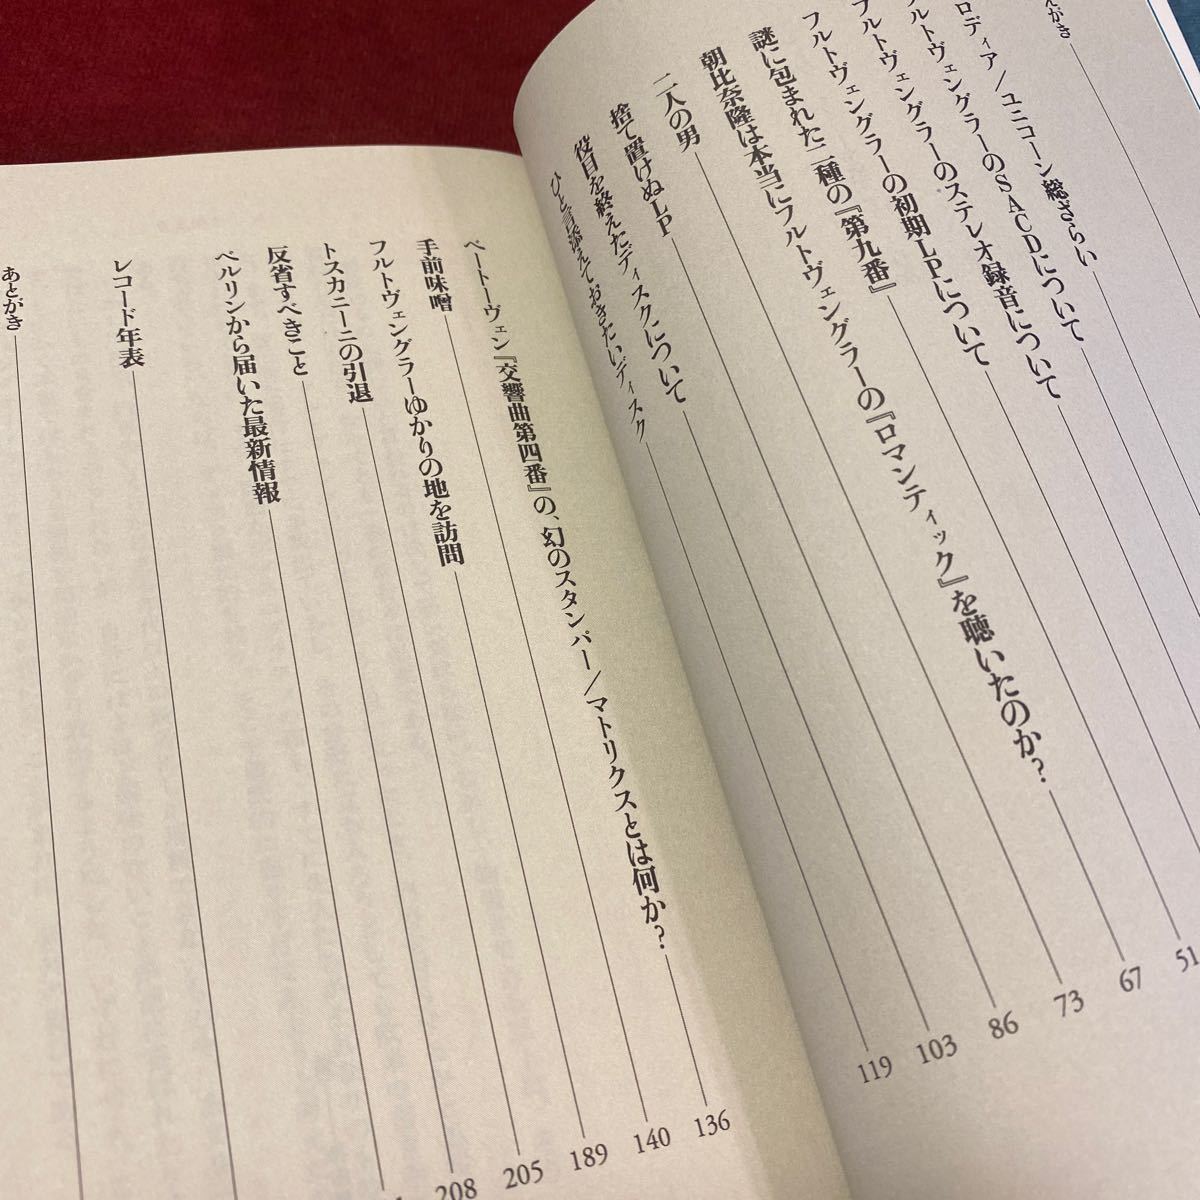 えがき
ロディア/ユニコーン総ざらい
ルトヴェングラーのSACDについて
フルトヴェングラーのステレオ録音について
フルトヴェングラーの初期LPについて
謎に包まれた二種の『第九番』 51
朝比奈隆は本当にフルトヴェングラーの『ロマンティック』を聴いたのか? 67
二人の男 73
捨て置けぬLP 86
役目を終えたディスクについて 103
ひと言添えておきたいディスク 119
ベートーヴェン『交響曲第四番』の、幻のスタンパー/マトリクスとは何か? 136
手前味噌 140
フルトヴェングラーゆかりの地を訪問 189
トスカニーニの引退 205
反省すべきこと 208
ベルリンから届いた最新情報
レコード年表
あとがき